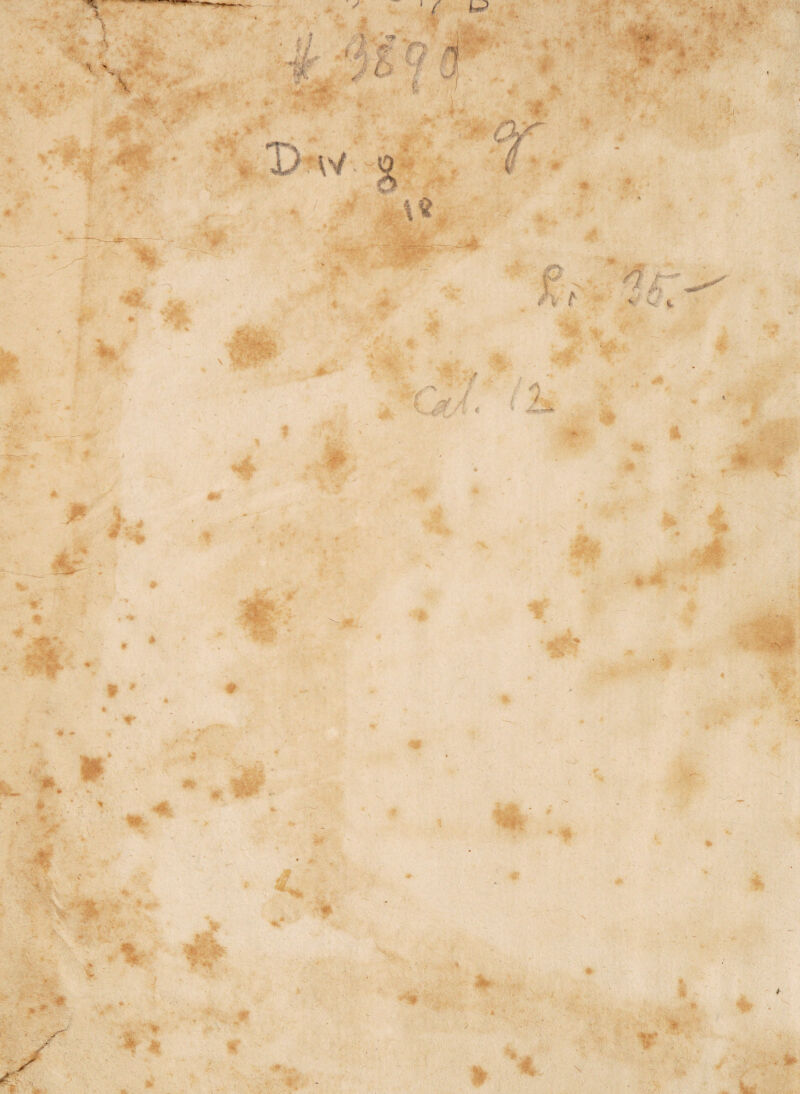 # 3890
D IV 8 g
18
L. 35.-
Cal. 12